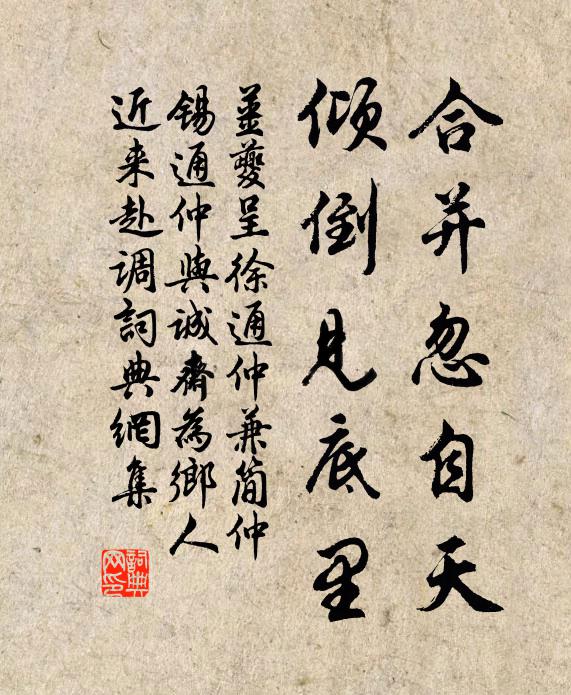 合并忽自天
倾倒见底里
姜夔呈徐通仲兼简仲
锡通仲与诚斋为乡人
近来赴调词典网集
词典网印